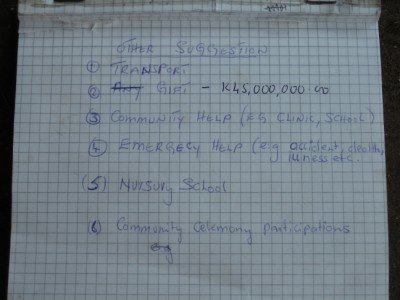 OTHER SUGGESTION
① TRANSPORT
② GIFT - K45,000,000.00
③ COMMUNITY HELP (EG CLINIC, SCHOOL)
④ EMERGECY HELP (e.g accident, death,
illness etc.
(5) NURSURY SCHOOL
(6) Community Celemony participations
eg